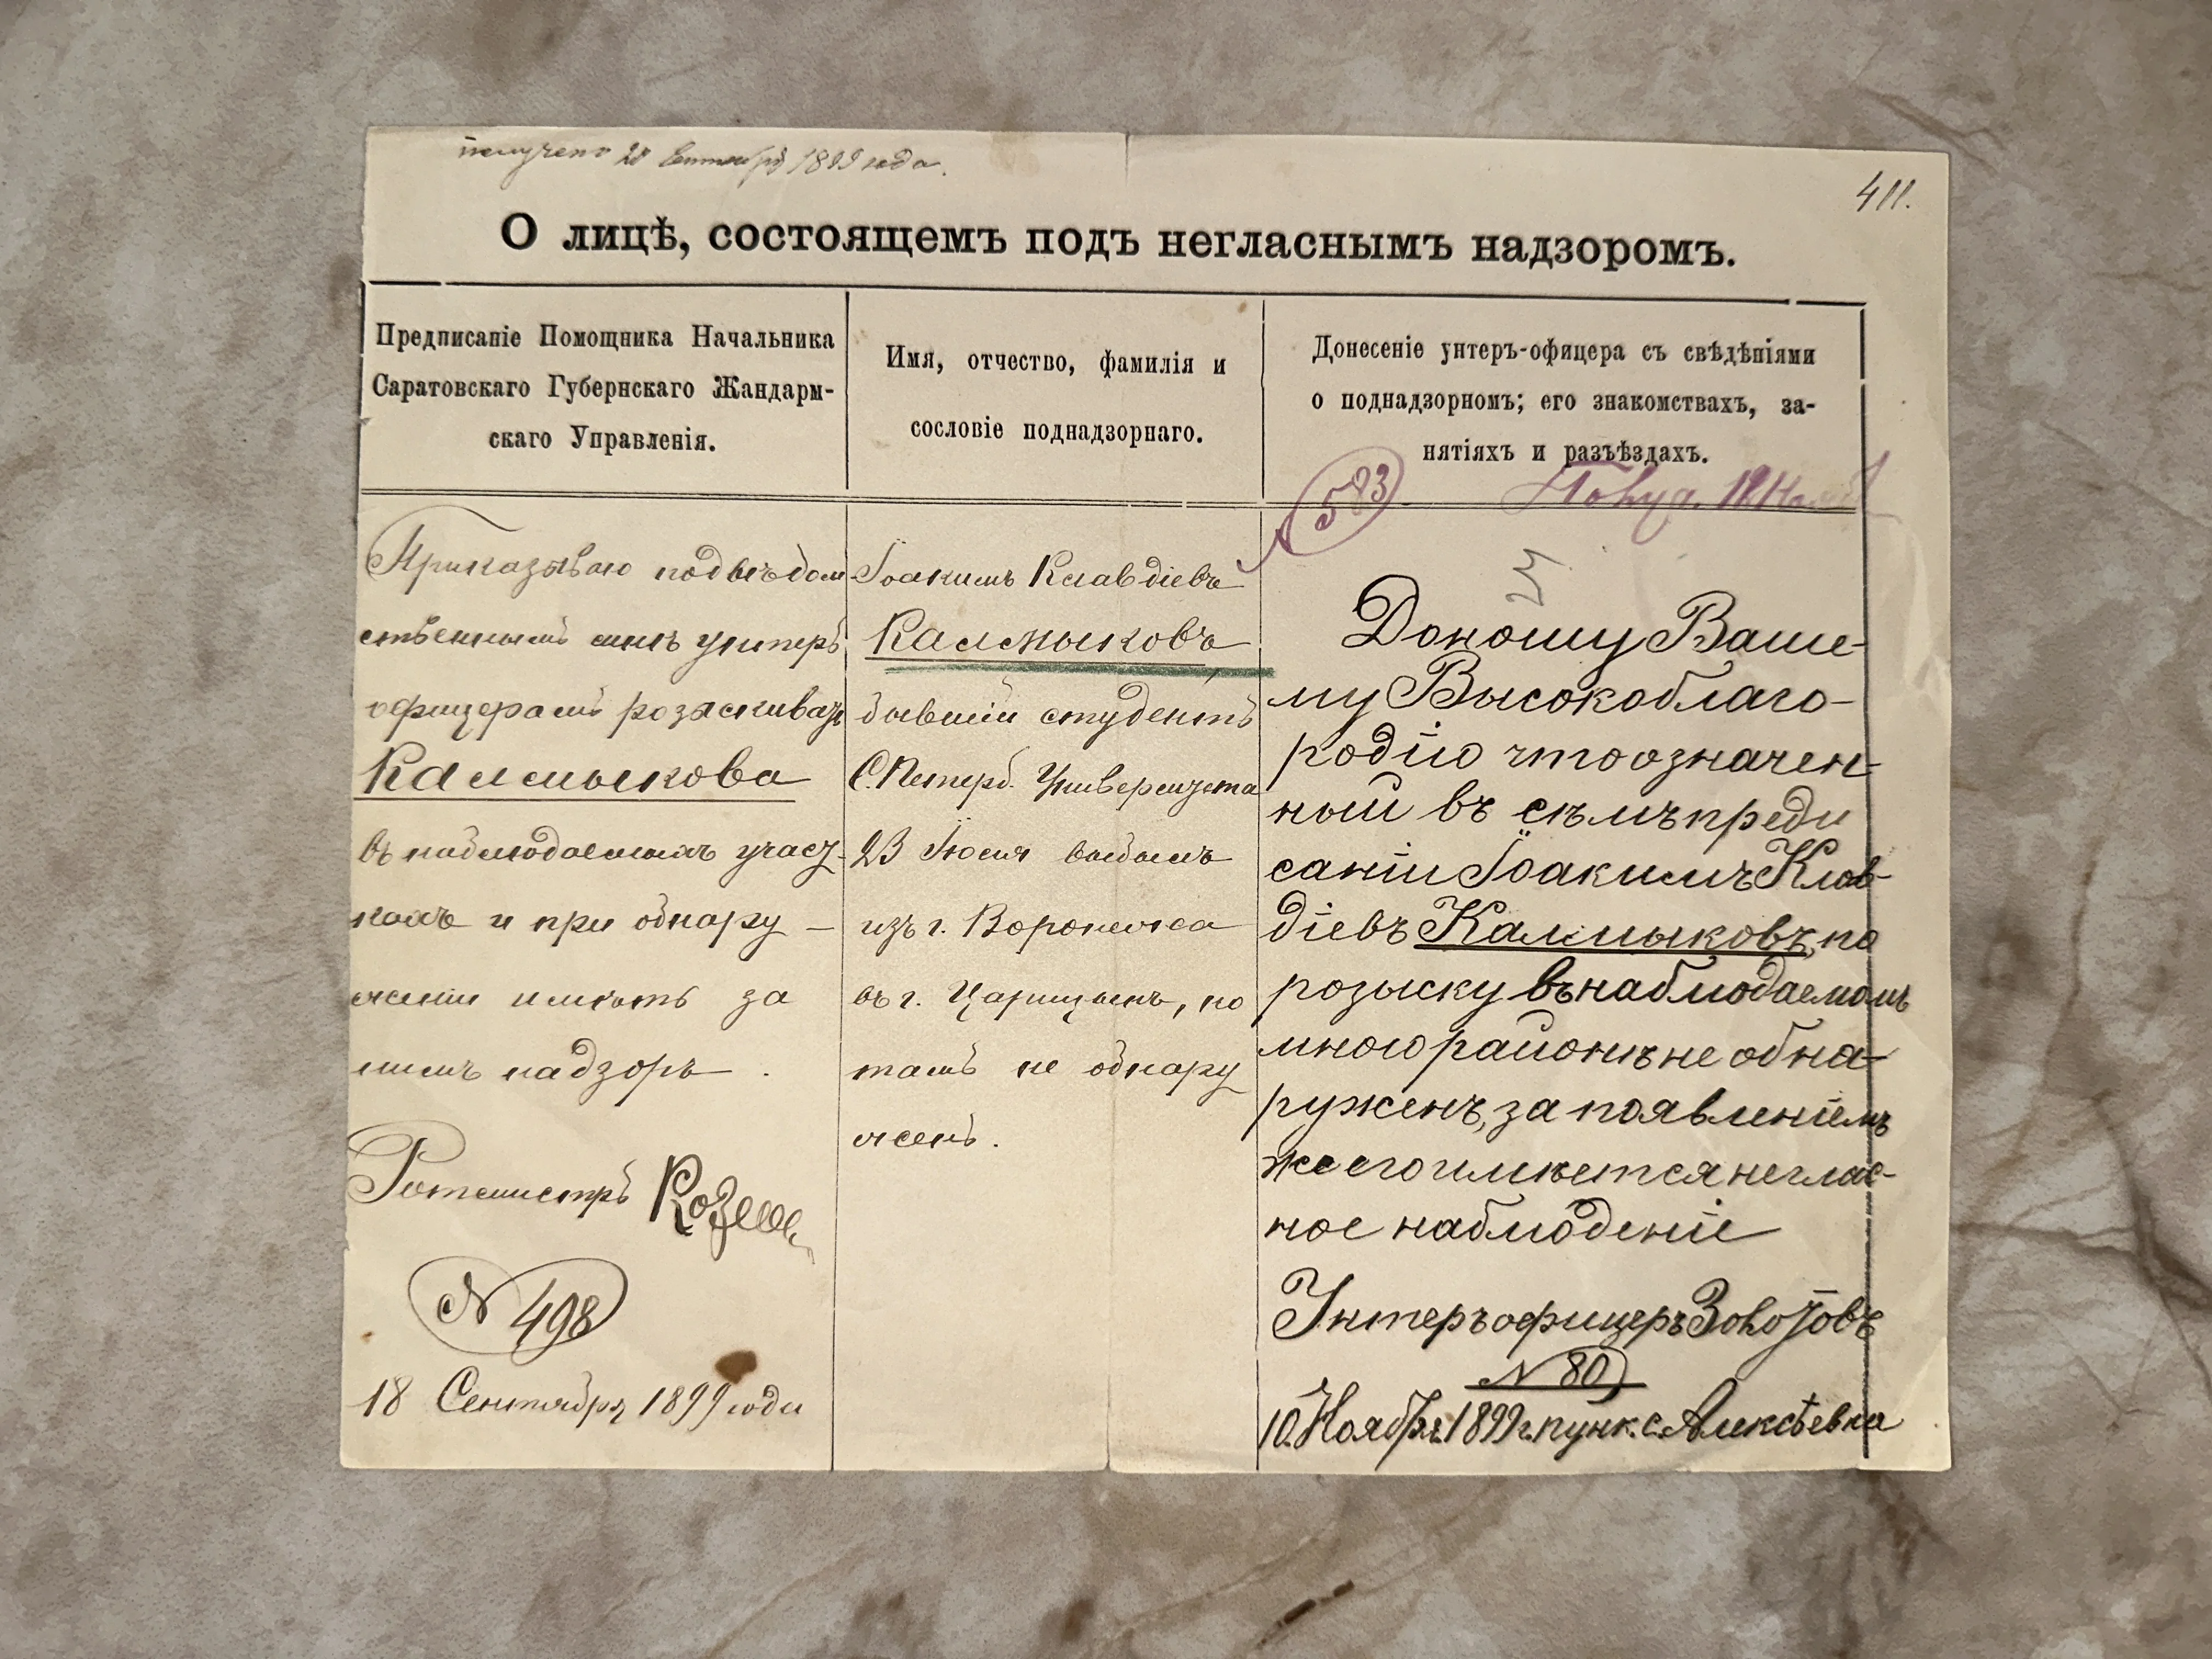 получено 20 Сентября 1899 года.
411.
О лицѣ, состоящемъ подъ негласнымъ надзоромъ.
Предписаніе Помощника Начальника
Саратовскаго Губернскаго Жандарм-
скаго Управленія.
Имя, отчество, фамилія и
сословіе поднадзорнаго.
Донесеніе унтеръ-офицера съ свѣдѣніями
о поднадзорномъ; его знакомствахъ, за-
нятіяхъ и разъѣздахъ.
Приказываю подвѣдом
ственнымъ мнѣ унтеръ
офицерамъ розыскивать
Калмыкова
въ наблюдаемыхъ участ-
кахъ и при обнару-
женіи имѣть за
нимъ надзоръ.
Ротмистръ
№ 498
18 Сентября 1899 года
Іоакимъ Клавдіевъ
Калмыковъ
бывшій студентъ
С.Петерб. Университета
23 Іюля выбылъ
изъ г. Воронежа
въ г. Царицынъ, но
тамъ не обнару
женъ.
583
Доношу Ваше-
му Высокоблаго-
родію что означен-
ный въ семъ преди
саніи Іоакимъ Клав-
діевъ Калмыковъ, по
розыску въ наблюдаемомъ
мною районѣ не обна-
руженъ, за появленіемъ
же его имѣется неглас-
ное наблюденіе
Унтеръ офицеръ Золотовъ
№ 80
10 Ноября 1899 г. пунк. с. Алексѣевка